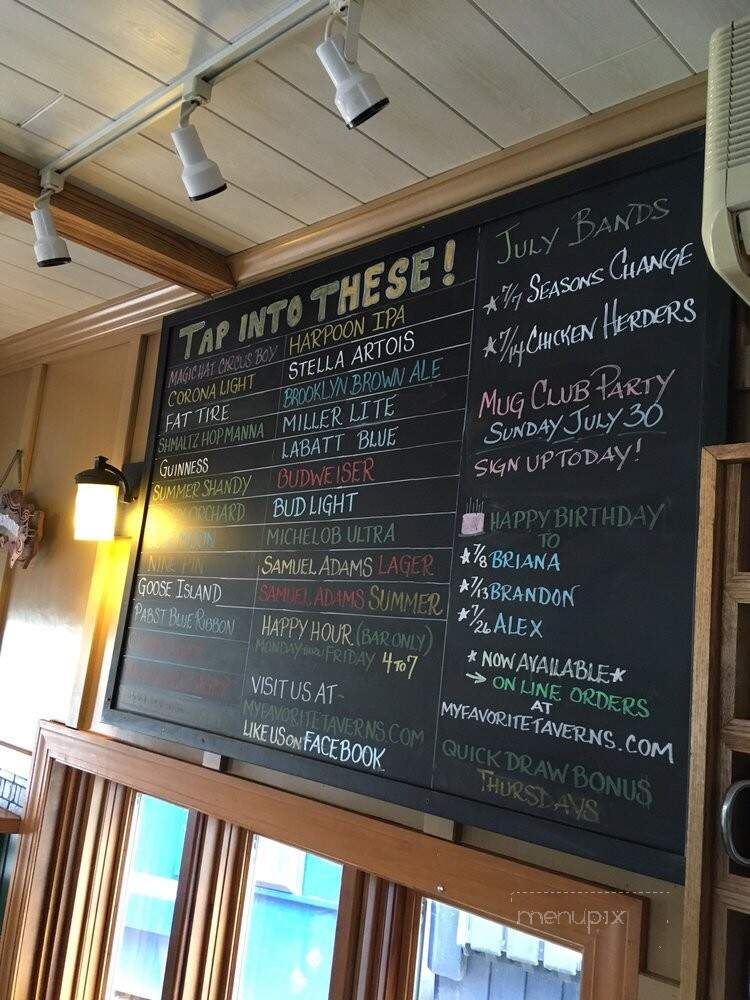 TAP INTO THESE!
MAGIC HAT CIRCUS BOY
CORONA LIGHT
FAT TIRE
SHMALTZ HOP MANNA
GUINNESS
SUMMER SHANDY
ORCHARD
NINE PIN
GOOSE ISLAND
PABST BLUE RIBBON
HARPOON IPA
STELLA ARTOIS
BROOKLYN BROWN ALE
MILLER LITE
LABATT BLUE
BUDWEISER
BUD LIGHT
MICHELOB ULTRA
SAMUEL ADAMS LAGER
SAMUEL ADAMS SUMMER
HAPPY HOUR (BAR ONLY)
MONDAY THRU FRIDAY 4 TO 7
VISIT US AT-
MYFAVORITETAVERNS.COM
LIKE US ON FACEBOOK
JULY BANDS
★ 7/7 SEASONS CHANGE
★ 7/14 CHICKEN HERDERS
MUG CLUB PARTY
SUNDAY JULY 30
SIGN UP TODAY!
HAPPY BIRTHDAY
TO
★ 7/8 BRIANA
★ 7/13 BRANDON
★ 7/26 ALEX
★ NOW AVAILABLE ★
→ ON LINE ORDERS
AT
MYFAVORITETAVERNS.COM
QUICK DRAW BONU$
THURSDAYS
menupix